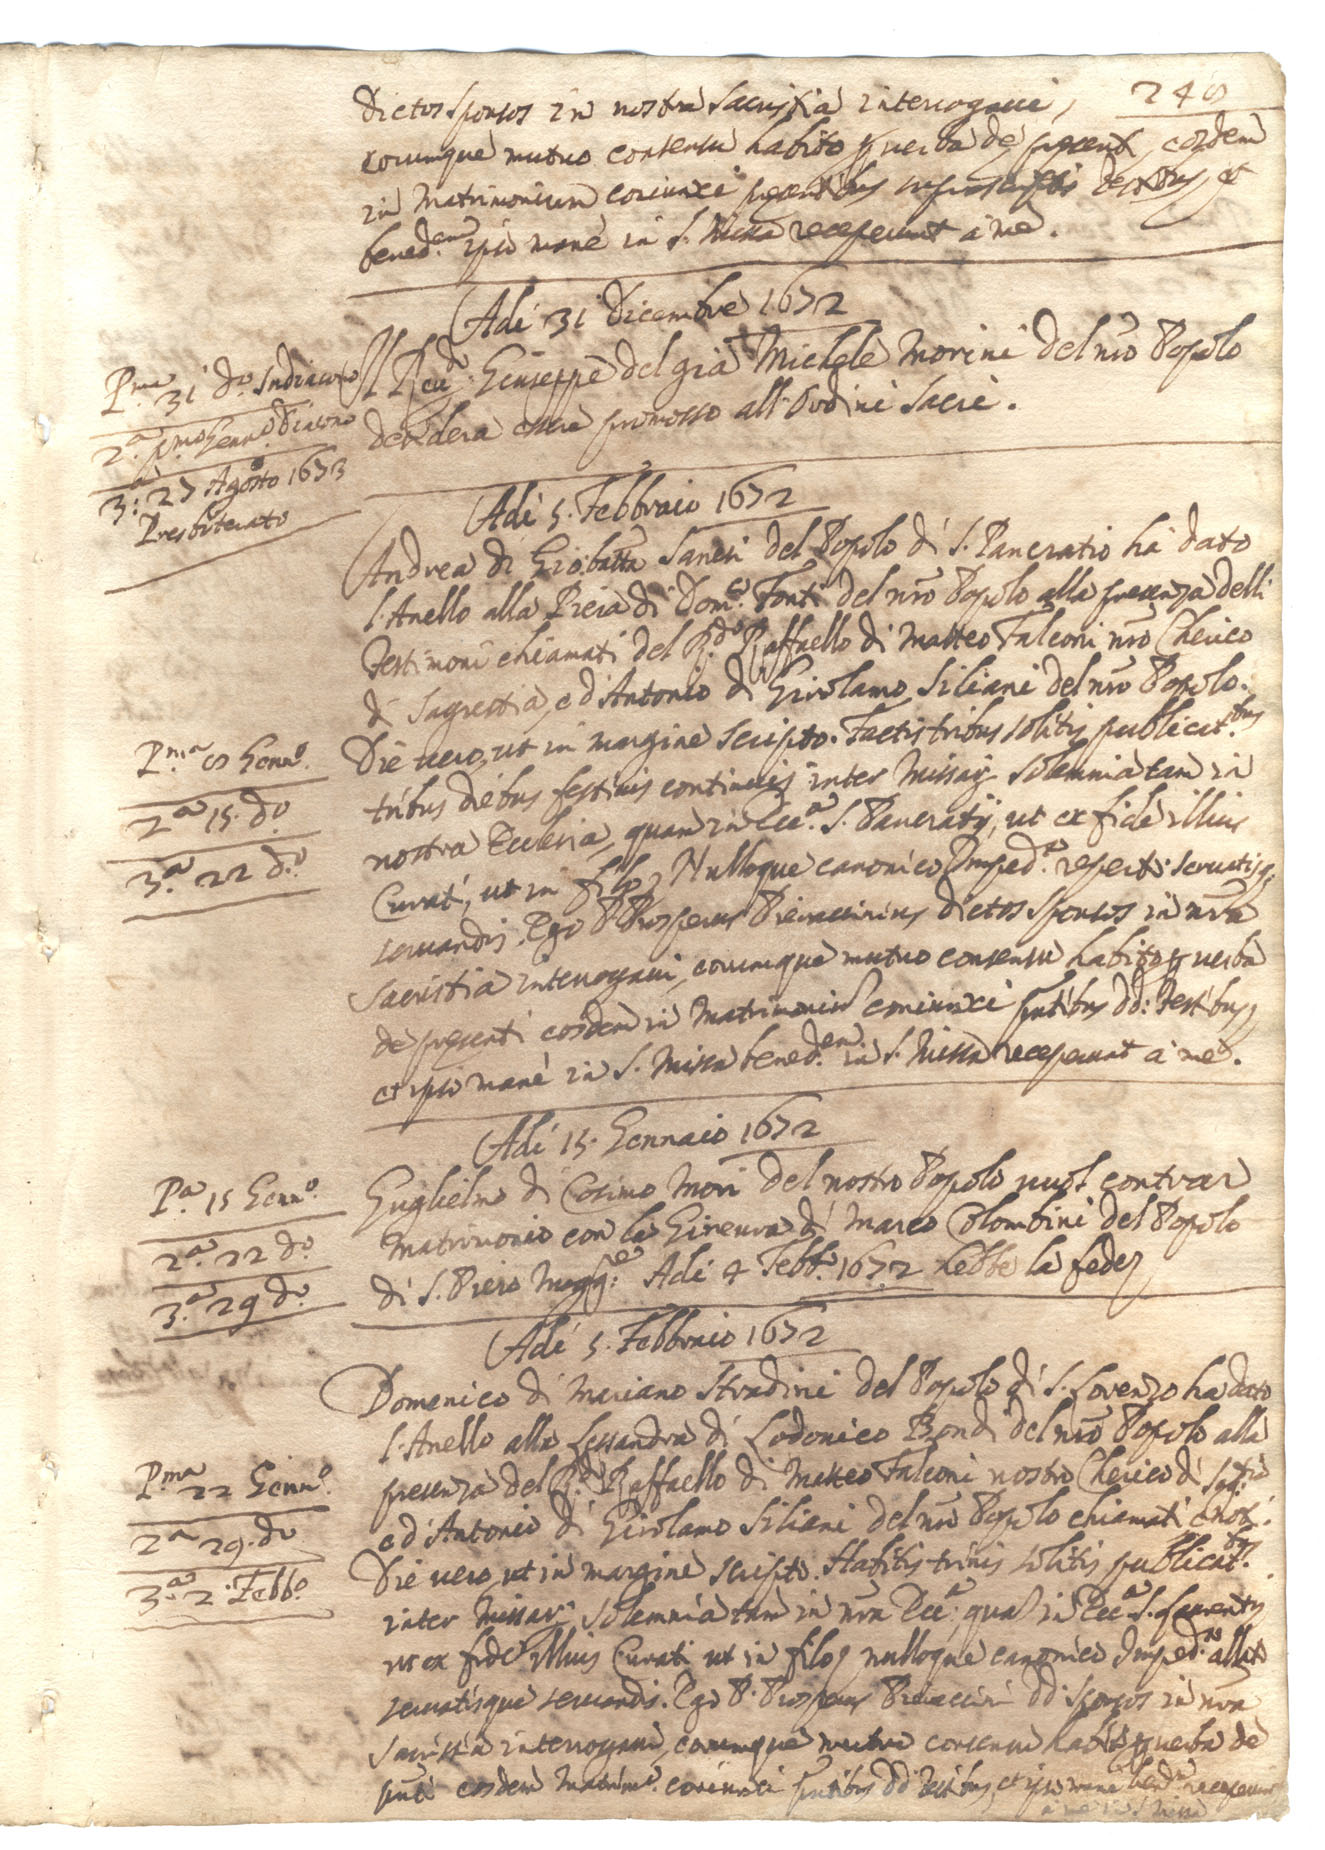 240
dictos sponsos in nostra sacristia interrogavi,
eorumque mutuo consensu habito p verba de present, eosdem
in Matrimonium coniunxi presentibus infrascriptis testibus et
bened.em ipso mane in S. Missa receperunt a me.
Adi 31 dicembre 1672
Il Reu.do Giuseppe del già Michele Morini del nro Popolo
desidera esser promosso all'Ordini Sacri.
P.ma 31 d.o Sudiacono
2.a p.mo Genn.o Diacono
3.a 27 Agosto 1673
Presbiterato
Adi 5. Febbraio 1672
Andrea di Gio:batta Saneri del Popolo di S. Pancratio ha dato
l'Anello alla Piera di Dom.co Fonti del nro Popolo alla presenza delli
Testimoni chiamati del R.do Raffaello di Matteo Falconi nro Cherico
di Sagrestia, e d'Antonio di Girolamo Siliani del nro Popolo.
Die vero, ut in margine scripto. Factis tribus solitis publicat.bus
tribus diebus festivis continuis inter Missar solemnia tam in
nostra Ecclesia, quam in Ecc.a S. Pancratij, ut ex fide illius
Curati, ut in filo, Nulloque canonico Imped.o reperto servatisq;
servandis. Ego P. Prosperus Pieraccinius dictos sponsos in nra
Sacristia interrogavi, eorumque mutuo consensu habito p verba
de presenti eosdem in Matrimoniu coniunxi pntibus dd: Testibus,
et ipso mane in S. Missa bened.em in S. Missa receperunt a me.
P.ma 8 Genn.o
2.a 15. d.o
3.a 22 d.o
Adi 15. Gennaio 1672
Guglielmo di Cosimo Mori del nostro Popolo vuol contrar
Matrimonio con la Ginevra di Marco Colombini del Popolo
di S. Piero Magg.re Adi 4 Febb.o 1672 hebbe la fede
P.a 15 Genn.o
2.a 22 d.o
3.a 29 d.o
Adi 5. Febbraio 1672
Domenico di Mariano Stradini del Popolo di S. Lorenzo ha dato
l'Anello alla Lessandra di Lodovico Bondi del nro Popolo alla
presenza del R.do Raffaello di Matteo Falconi nostro Cherico di Sag.tia
e d'Antonio di Girolamo Siliani del nro Popolo chiamati
Die vero, ut in margine scripto. Habitis trinis solitis publicat.bus
inter Missar. solemnia tam in nra Ecc.a, qua in Ecc.a S. Laurentij
ut ex fide illius Curati ut in filo, nulloque canonico Imped.o
servatisque servandis. Ego P. Prosperus Pieraccini dd: sponsos in nra
Sacristia interrogavi, eorumque mutuo consensu habito p verba de
pnti eosdem Matrim.o coniunxi pntibus dd: Testibus, et ipso mane bened.em receperunt
a me in S. Missa
P.ma 22 Genn.o
2.a 29. d.o
3.a 2. Febb.o